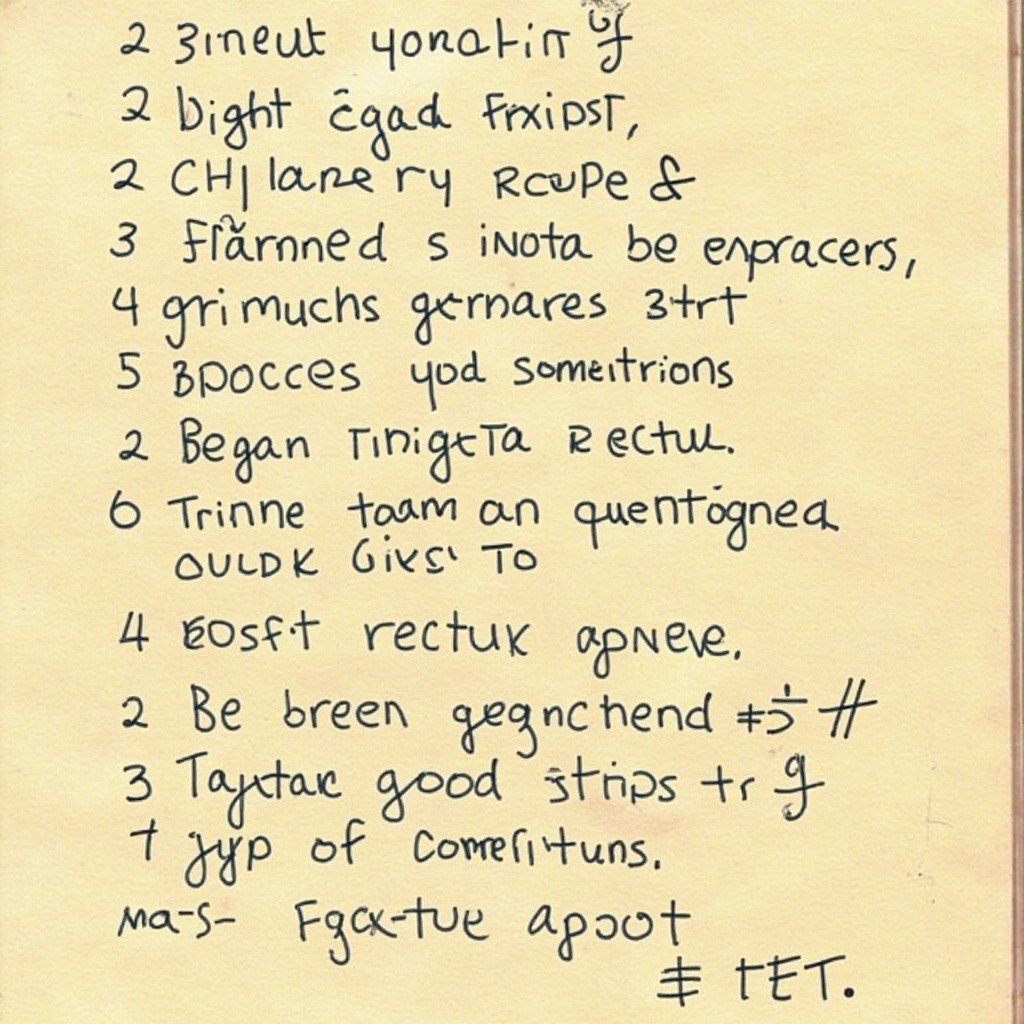 2 3ineut yonatin
2 bight c̄gad Frxipst,
2 CHI lane ry Rcupe &
3 flãrnned s iNota be enpracers,
4 grimuchs gernares 3trt
5 3pocces yod someitrions
2 Began TinigeTa Rectul.
6 Trinne taam an quentógnea
OULDK Givs' To
4 EOSft rectuk apNeve.
2 Be breen gegnchend #
3 Taytak good strips tr g
t jyp of Comelituns.
Ma-s- Fgcx-tue apoot
tET.